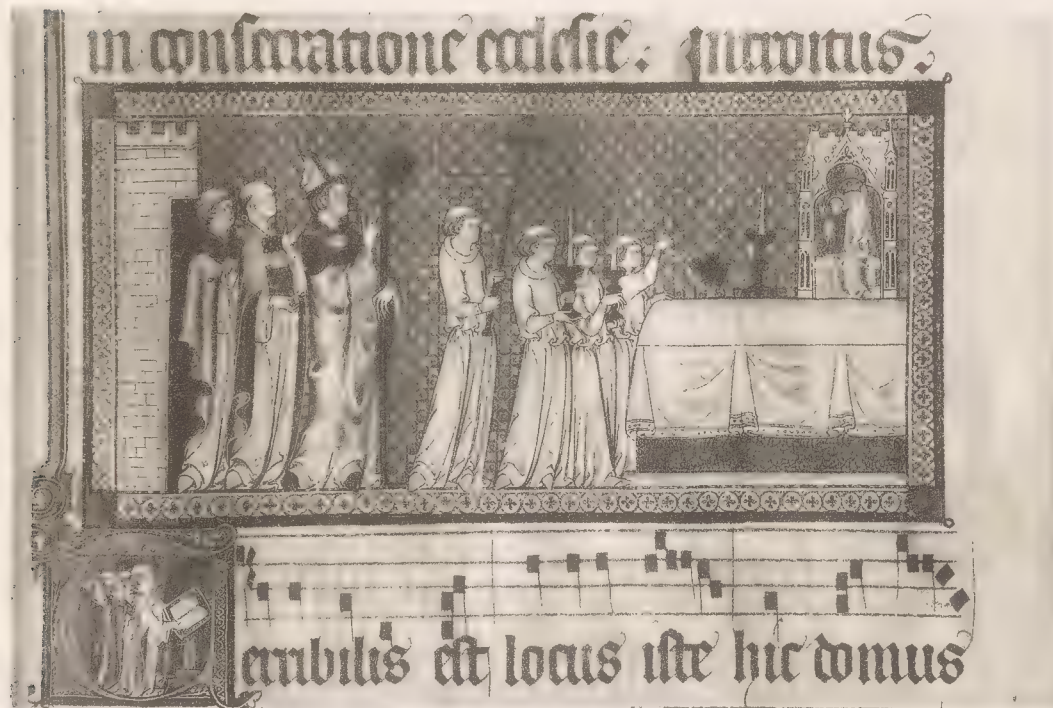 in consecratione ecclesie: Introitus.
erribilis est locus iste hic domus